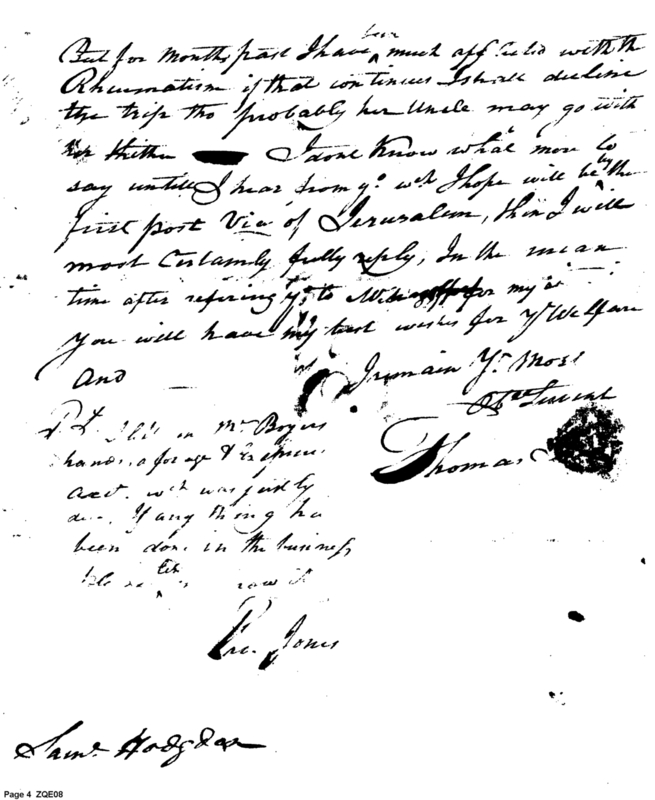 been
But for months past I have ^ much afflicted with the
Rheumatism if that continues I shall decline
the trip tho probably her Uncle may go with
her thither I done Know what more to
say untill I hear from yo. wch I hope will be ^by the
first post Via of Jerusalem, then I will
most Certainly fully reply, In the mean
time after refering yo. to for my
you will have my best wishes for Yr Welfare
And
I remain Yr. Most
Obt Servant
Thomas
P.S. I left in Mr Boyers
hands, a forage & Expence
Acct. wch was justly
due, If any thing ha
been done in the business
Tho. Jones
Saml. Hodgdon
Page 4 ZQE08